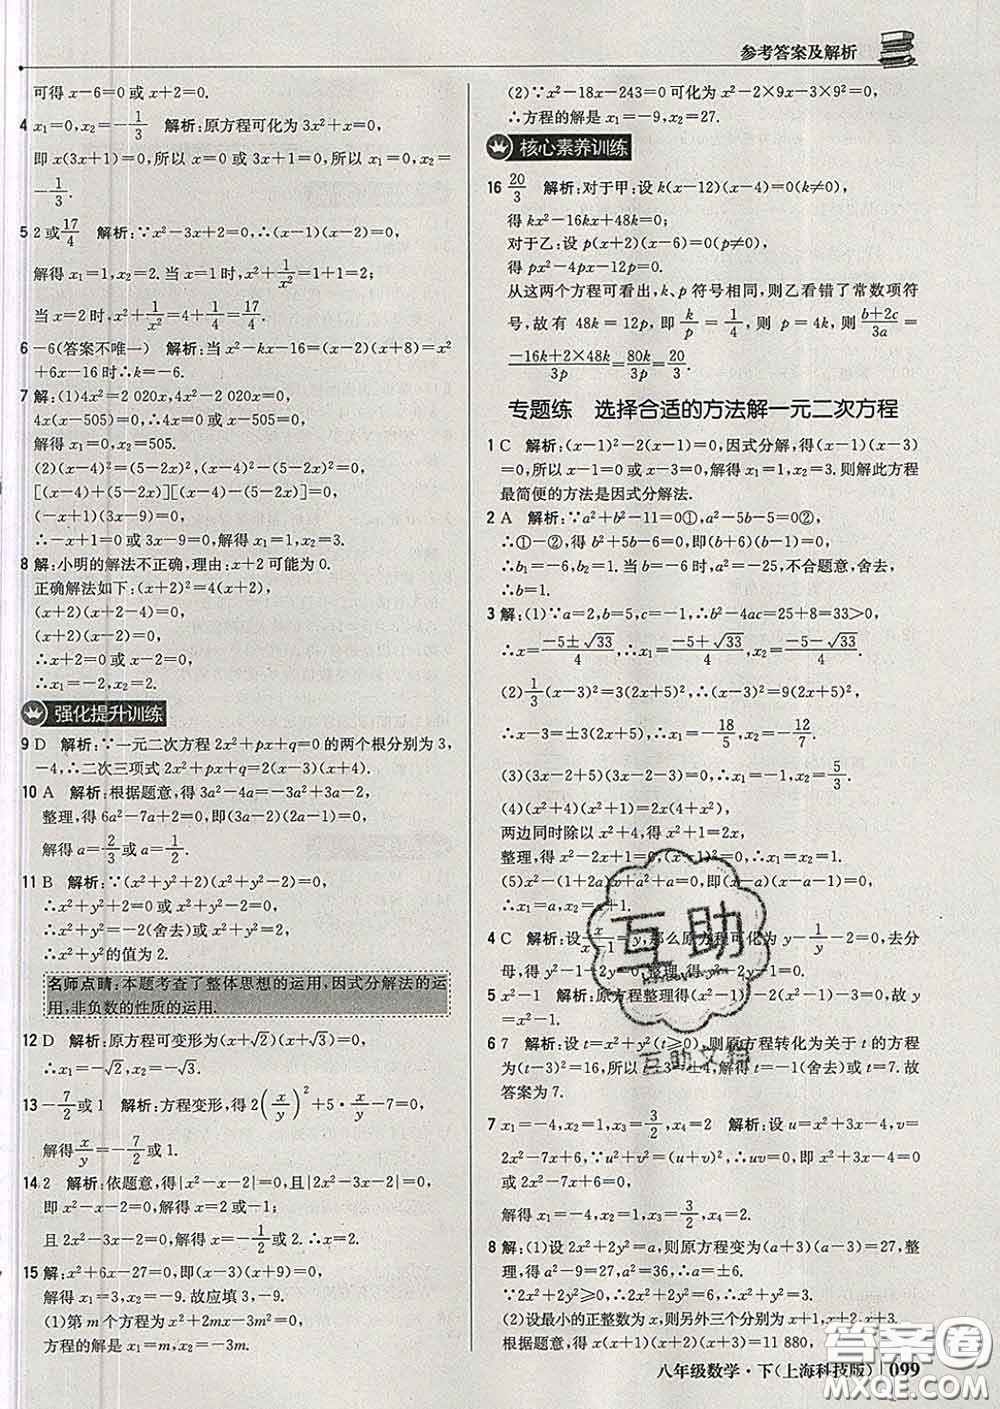 参考答案及解析
可得 x-6=0 或 x+2=0.
4 x₁=0, x₂=-1/3 解析:原方程可化为 3x²+x=0,
即 x(3x+1)=0,所以 x=0 或 3x+1=0,所以 x₁=0, x₂=
-1/3.
5 2 或 17/4 解析:∵x²-3x+2=0,∴(x-1)(x-2)=0,
解得 x₁=1, x₂=2. 当 x=1 时, x²+1/x²=1+1=2;
当 x=2 时, x²+1/x²=4+1/4=17/4.
6 -6(答案不唯一) 解析:当 x²-kx-16=(x-2)(x+8)=x²
+6x-16 时∴k=-6.
7 解:(1)4x²=2 020x, 4x²-2 020x=0,
4x(x-505)=0,∴4x=0 或 x-505=0,
解得 x₁=0, x₂=505.
(2)(x-4)²=(5-2x)², (x-4)²-(5-2x)²=0,
[(x-4)+(5-2x)][(x-4)-(5-2x)]=0,
(-x+1)(3x-9)=0,
∴-x+1=0 或 3x-9=0,解得 x₁=1, x₂=3.
8 解:小明的解法不正确,理由:x+2 可能为 0.
正确解法如下:(x+2)²=4(x+2),
(x+2)(x+2-4)=0,
(x+2)(x-2)=0,
∴x+2=0 或 x-2=0,
∴x₁=-2, x₂=2.
强化提升训练
9 D 解析:∵一元二次方程 2x²+px+q=0 的两个根分别为 3,
-4,∴二次三项式 2x²+px+q=2(x-3)(x+4).
10 A 解析:根据题意,得 3a²-4a=-3a²+3a-2,
整理,得 6a²-7a+2=0,即(3a-2)(2a-1)=0,
解得 a=2/3 或 a=1/2.
11 B 解析:∵(x²+y²+2)(x²+y²-2)=0,
∴x²+y²+2=0 或 x²+y²-2=0,
∴x²+y²=-2(舍去)或 x²+y²=2,
∴x²+y² 的值为 2.
名师点睛:本题考查了整体思想的运用,因式分解法的运
用,非负数的性质的运用.
12 D 解析:原方程可变形为(x+√2)(x+√3)=0,
∴x₁=-√2, x₂=-√3.
13 -7/2 或 1 解析:方程变形,得 2(x/y)²+5·x/y-7=0,
解得 x/y=-7/2 或 1.
14 2 解析:依题意,得|x²-x-2|=0,且|2x²-3x-2|=0,
即 x²-x-2=0,解得 x=2 或 -1;
且 2x²-3x-2=0,解得 x=-1/2 或 2. ∴x=2.
15 解:x²+6x-27=0,即(x+9)(x-3)=0,
解得 x₁=3, x₂=-9. 故应填 3,-9.
(1)第 m 个方程为 x²+2mx-3m²=0,
方程的解是 x₁=m, x₂=-3m.
(2)∵x²-18x-243=0 可化为 x²-2×9x-3×9²=0,
∴方程的解是 x₁=-9, x₂=27.
核心素养训练
16 20/3 解析:对于甲:设 k(x-12)(x-4)=0(k≠0),
得 kx²-16kx+48k=0;
对于乙:设 p(x+2)(x-6)=0(p≠0),
得 px²-4px-12p=0,
从这两个方程可看出, k、p 符号相同,则乙看错了常数项符
号,故有 48k=12p,即 k/p=1/4,则 p=4k,则 (b+2c)/3a=
(-16k+2×48k)/3p=80k/3p=20/3.
专题练 选择合适的方法解一元二次方程
1 C 解析:(x-1)²-2(x-1)=0,因式分解,得(x-1)(x-3)
=0,所以 x-1=0 或 x-3=0,解得 x₁=1, x₂=3. 则解此方程
最简便的方法是因式分解法.
2 A 解析:∵a²+b²-11=0①, a²-5b-5=0②,
∴①-②,得 b²+5b-6=0,即(b+6)(b-1)=0,
∴b₁=-6, b₂=1. 当 b=-6 时, a²=-25,不合题意,舍去,
∴b=1.
3 解:(1)∵a=2, b=5, c=-1,∴b²-4ac=25+8=33>0,
∴x=(-5±√33)/4,∴x₁=(-5+√33)/4, x₂=(-5-√33)/4.
(2)1/3(x-3)²=3(2x+5)²,∴(x-3)²=9(2x+5)²,
∴x-3=±3(2x+5),∴x₁=-18/5, x₂=-12/7.
(3)(3x-5)(x+2)=0,∴x₁=-2, x₂=5/3.
(4)(x²+4)²=11(x²+4),
两边同时除以 x²+4,得 x²+4=11,
整理,得 x²=7,∴x₁=√7, x₂=-√7.
(5)x²-(1+2a)x+a²+a=0,即(x-a-1)(x-a)=0,
∴x₁=a+1, x₂=a.
4 C 解析:设 x/(x-1)=y,那么原方程可化为 y-1/y-2=0,去分
母,得 y²-1-2y=0,即 y²-2y-1=0.
5 x²-1 解析:原方程整理得(x²-1)²-(x²-1)-2=0,故 y
=x²-1.
6 7 解析:设 t=x²+y²(t≥0),则原方程转化为关于 t 的方程
为(t-3)²=16,解得 t-3=±4,则 t=-1(舍去)或 t=7. 故
答案为 7.
7 x₁=-4, x₂=1, x₃=3/2, x₄=2 解析:设 u=x²+3x-4, v=
2x²-7x+6,∵u²+v²=(u+v)²,∴uv=0,
解得 x₁=-4, x₂=1, x₃=3/2, x₄=2.
8 解:(1)设 2x²+2y²=a,则原方程变为(a+3)(a-3)=27,整
∵2x²+2y²≥0,∴2x²+2y²=6,∴x²+y²=3.
(2)设最小的正整数为 x,则另外三个分别为 x+1, x+2, x+3,
根据题意,得 x(x+1)(x+2)(x+3)=11 880,
八年级数学·下(上海科技版) 099
互助
互助文档
答案圈
MXQE.COM